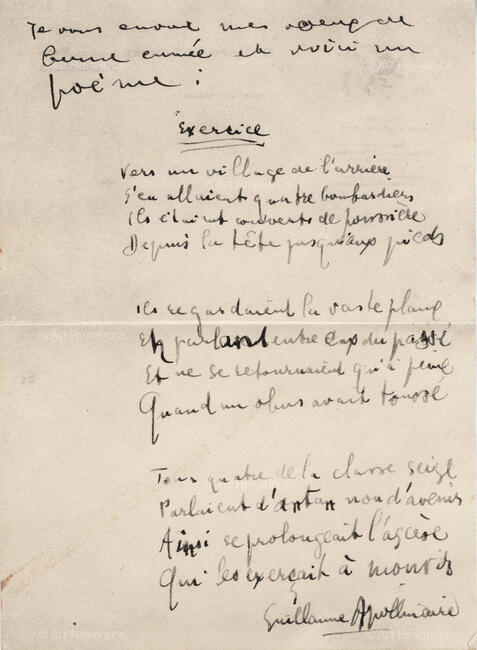 Je vous envoie mes voeux de
bonne année et voici un
poème :
Exercice
Vers un village de l'arrière
S'en allaient quatre bombardiers
Ils étaient couverts de poussière
Depuis la tête jusqu'aux pieds
Ils regardaient la vaste plaine
En parlant entre eux du passé
Et ne se retournaient qu'à peine
Quand un obus avait toussé
Tous quatre de la classe seize
Parlaient d'antan non d'avenir
Ainsi se prolongeait l'ascèse
Qui les exerçait à mourir
Guillaume Apollinaire
© Art Resource